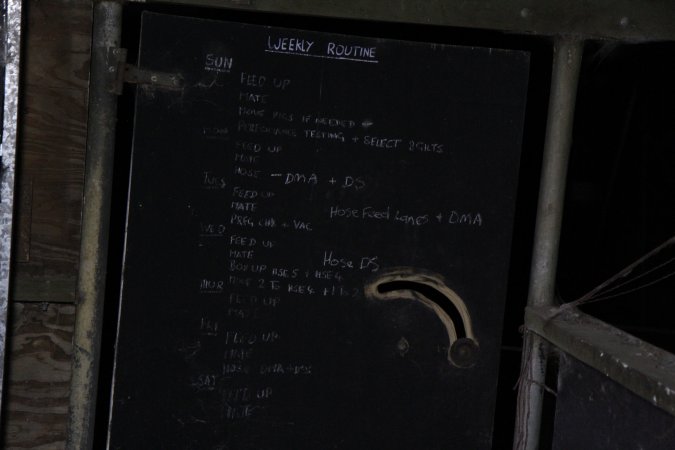 WEEKLY ROUTINE
SUN
FEED UP
MATE
MOVE PIGS IF NEEDED
PERFORMANCE TESTING + SELECT BGILTS
FEED UP
MATE
HOSE - DMA + DS
TUES
FEED UP
MATE Hose Feed Lanes + DMA
PREG CHK + VAC
WED
FEED UP
MATE Hose DS
BOX UP HSE 5 + HSE 4
MOVE 2 TO HSE 4 + 1 TO 2
FEED UP
MATE
FRI
FEED UP
MATE
HOSE DMA + DS
SAT
FEED UP
MATE